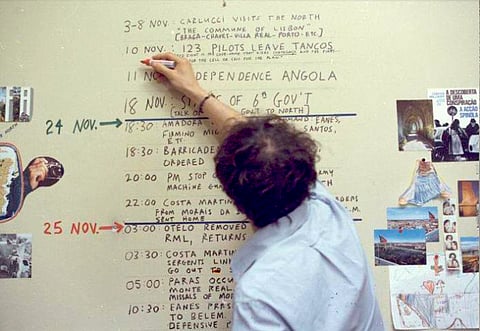 3-8 NOV: CARLUCCI VISITS THE NORTH
"THE COMMUNE OF LISBON"
[BRAGA-CHAVES-VILLA REAL-PORTO-ETC.]
10 NOV: 123 PILOTS LEAVE TANCOS
11 NOV INDEPENDENCE ANGOLA
18 NOV: OF 6th GOV'T
GOV'T TO NORTH]
24 NOV.
18:30: AMADORA EANES,
FIRMINO MIG SANTOS,
ETC.
18:30: BARRICADE
ORDERED
20:00 PM STOP
MACHINE
22:00 COSTA MARTIN
FROM MORAIS DA
SENT HOME
25 NOV.
03:00: OTELO REMOVED
RML, RETURNS
03:30: COSTA MARTIN
SERGENTS LINK
GO OUT TO
05:00: PARAS OCCU
MONTE REAL
MISSALS OF MO
10:30: EANES PRES
TO BELEM.
DEFENSIVE
A DESCOBERTA
DE UMA
CONSPIRAÇÃO
A ACÇÃO
SPINOLA